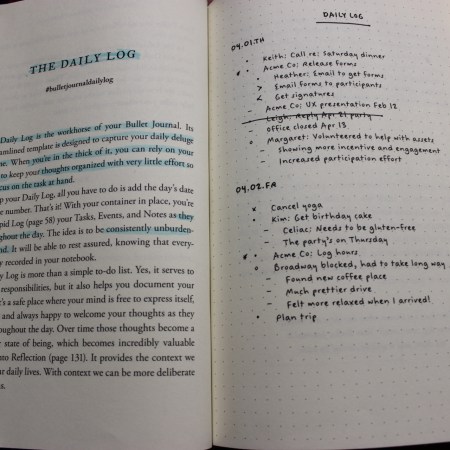 THE DAILY LOG
#bulletjournaldailylog
Daily Log is the workhorse of your Bullet Journal. Its
amlined template is designed to capture your daily deluge
When you're in the thick of it, you can rely on your
to keep your thoughts organized with very little effort so
cus on the task at hand.
keep your Daily Log, all you have to do is add the day's date
e number. That's it! With your container in place, you're
pid Log (page 58) your Tasks, Events, and Notes as they
oughout the day. The idea is to be consistently unburden-
nd. It will be able to rest assured, knowing that every-
y recorded in your notebook.
ly Log is more than a simple to-do list. Yes, it serves to
responsibilities, but it also helps you document your
t's a safe place where your mind is free to express itself,
and always happy to welcome your thoughts as they
oughout the day. Over time those thoughts become a
r state of being, which becomes incredibly valuable
nto Reflection (page 131). It provides the context we
ur daily lives. With context we can be more deliberate
s.
DAILY LOG
04.01.TH
• Keith: Call re: Saturday dinner
* • Acme Co: Release forms
• Heather: Email to get forms
> Email forms to participants
< Get signatures
– Acme Co: UX presentation Feb 12
• Leigh: Reply Apr 21 party
– Office closed Apr 13
o Margaret: Volunteered to help with assets
– Showing more incentive and engagement
– Increased participation effort
04.02.FR
x Cancel yoga
• Kim: Get birthday cake
– Celiac: Needs to be gluten-free
– The party's on Thursday
* • Acme Co: Log hours
o Broadway blocked, had to take long way
– Found new coffee place
– Much prettier drive
– Felt more relaxed when I arrived!
• Plan trip